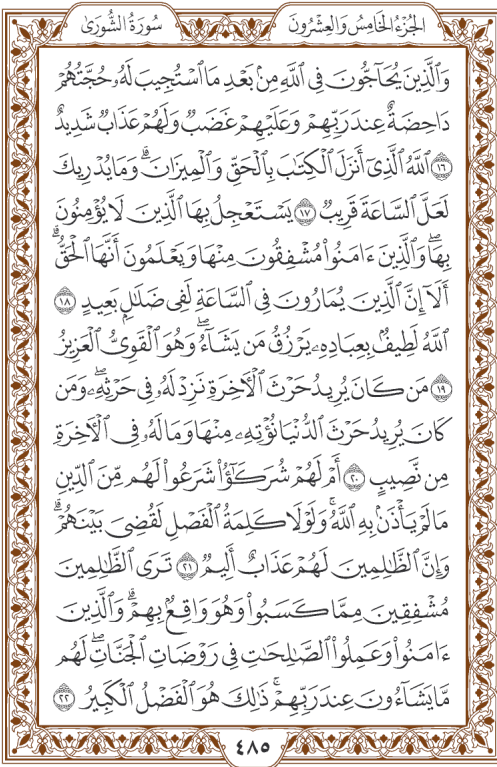 الجُزْءُ الخَامِسُ وَالعِشْرُونَ
سُورَةُ الشُّورَىٰ
وَالَّذِينَ يُحَاجُّونَ فِي اللَّهِ مِنۢ بَعْدِ مَا ٱسْتُجِيبَ لَهُۥ حُجَّتُهُمْ
دَاحِضَةٌ عِندَ رَبِّهِمْ وَعَلَيْهِمْ غَضَبٌ وَلَهُمْ عَذَابٌ شَدِيدٌ
١٦ ٱللَّهُ ٱلَّذِىٓ أَنزَلَ ٱلْكِتَٰبَ بِٱلْحَقِّ وَٱلْمِيزَانَ ۗ وَمَا يُدْرِيكَ
لَعَلَّ ٱلسَّاعَةَ قَرِيبٌ ١٧ يَسْتَعْجِلُ بِهَا ٱلَّذِينَ لَا يُؤْمِنُونَ
بِهَا ۖ وَٱلَّذِينَ ءَامَنُوا۟ مُشْفِقُونَ مِنْهَا وَيَعْلَمُونَ أَنَّهَا ٱلْحَقُّ ۗ
أَلَآ إِنَّ ٱلَّذِينَ يُمَارُونَ فِى ٱلسَّاعَةِ لَفِى ضَلَٰلٍۭ بَعِيدٍ ١٨
ٱللَّهُ لَطِيفٌۢ بِعِبَادِهِۦ يَرْزُقُ مَن يَشَآءُ ۖ وَهُوَ ٱلْقَوِىُّ ٱلْعَزِيزُ
١٩ مَن كَانَ يُرِيدُ حَرْثَ ٱلْءَاخِرَةِ نَزِدْ لَهُۥ فِى حَرْثِهِۦ ۖ وَمَن
كَانَ يُرِيدُ حَرْثَ ٱلدُّنْيَا نُؤْتِهِۦ مِنْهَا وَمَا لَهُۥ فِى ٱلْءَاخِرَةِ
مِن نَّصِيبٍ ٢٠ أَمْ لَهُمْ شُرَكَٰٓؤُا۟ شَرَعُوا۟ لَهُم مِّنَ ٱلدِّينِ
مَا لَمْ يَأْذَنۢ بِهِ ٱللَّهُ ۚ وَلَوْلَا كَلِمَةُ ٱلْفَصْلِ لَقُضِىَ بَيْنَهُمْ ۗ
وَإِنَّ ٱلظَّٰلِمِينَ لَهُمْ عَذَابٌ أَلِيمٌ ٢١ تَرَى ٱلظَّٰلِمِينَ
مُشْفِقِينَ مِمَّا كَسَبُوا۟ وَهُوَ وَاقِعٌۢ بِهِمْ ۗ وَٱلَّذِينَ
ءَامَنُوا۟ وَعَمِلُوا۟ ٱلصَّٰلِحَٰتِ فِى رَوْضَاتِ ٱلْجَنَّاتِ ۖ لَهُم
مَّا يَشَآءُونَ عِندَ رَبِّهِمْ ۚ ذَٰلِكَ هُوَ ٱلْفَضْلُ ٱلْكَبِيرُ ٢٢
٤٨٥